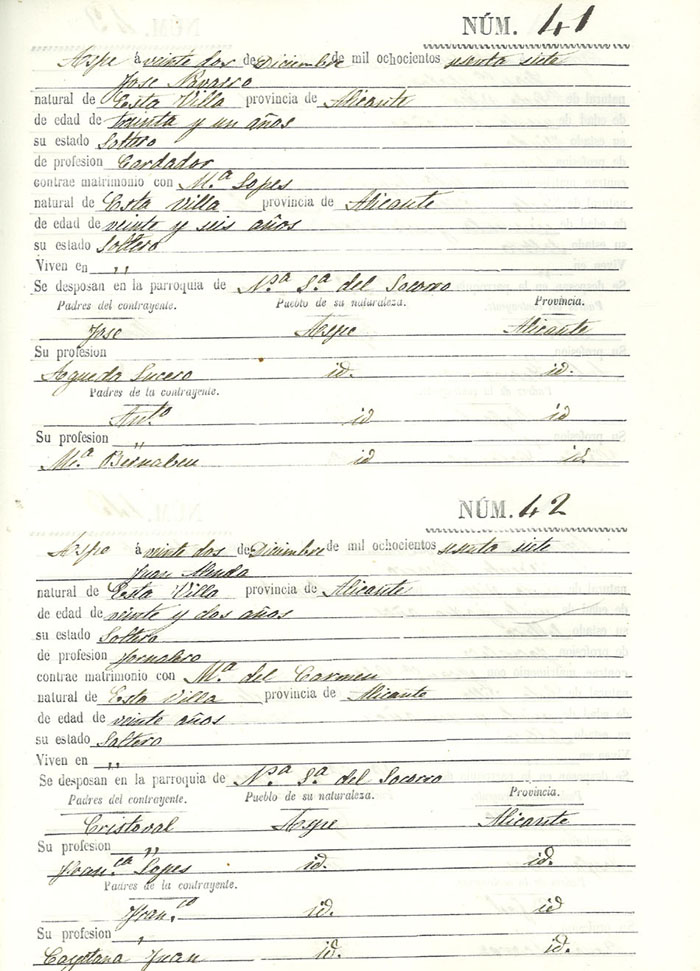 NÚM. 41
Aspe á veinte dos de Diciembre de mil ochocientos sesenta siete
Jose Navarro
natural de Esta Villa provincia de Alicante
de edad de treinta y un años
su estado Soltero
de profesion Cardador
contrae matrimonio con M.ª Lopes
natural de Esta Villa provincia de Alicante
de edad de veinte y seis años
su estado Soltero
Viven en ,,
Se desposan en la parroquia de N.ª S.ª del Socorro
Padres del contrayente. Pueblo de su naturaleza. Provincia.
Jose Aspe Alicante
Su profesion
Agueda Lucero id. id.
Padres de la contrayente.
Ant.º id id
Su profesion ,,
M.ª Bernabeu id id.
NÚM. 42
Aspe á veinte dos de Diciembre de mil ochocientos sesenta siete
Juan
natural de Esta Villa provincia de Alicante
de edad de veinte y dos años
su estado Soltero
de profesion Jornalero
contrae matrimonio con M.ª del Carmen
natural de Esta Villa provincia de Alicante
de edad de veinte años
su estado Soltero
Viven en ,,
Se desposan en la parroquia de N.ª S.ª del Socorro
Padres del contrayente. Pueblo de su naturaleza. Provincia.
Cristoval Aspe Alicante
Su profesion ,,
Fran.ca Lopes id. id.
Padres de la contrayente.
Fran.co id. id
Su profesion ,
Cayetana Juan id. id.